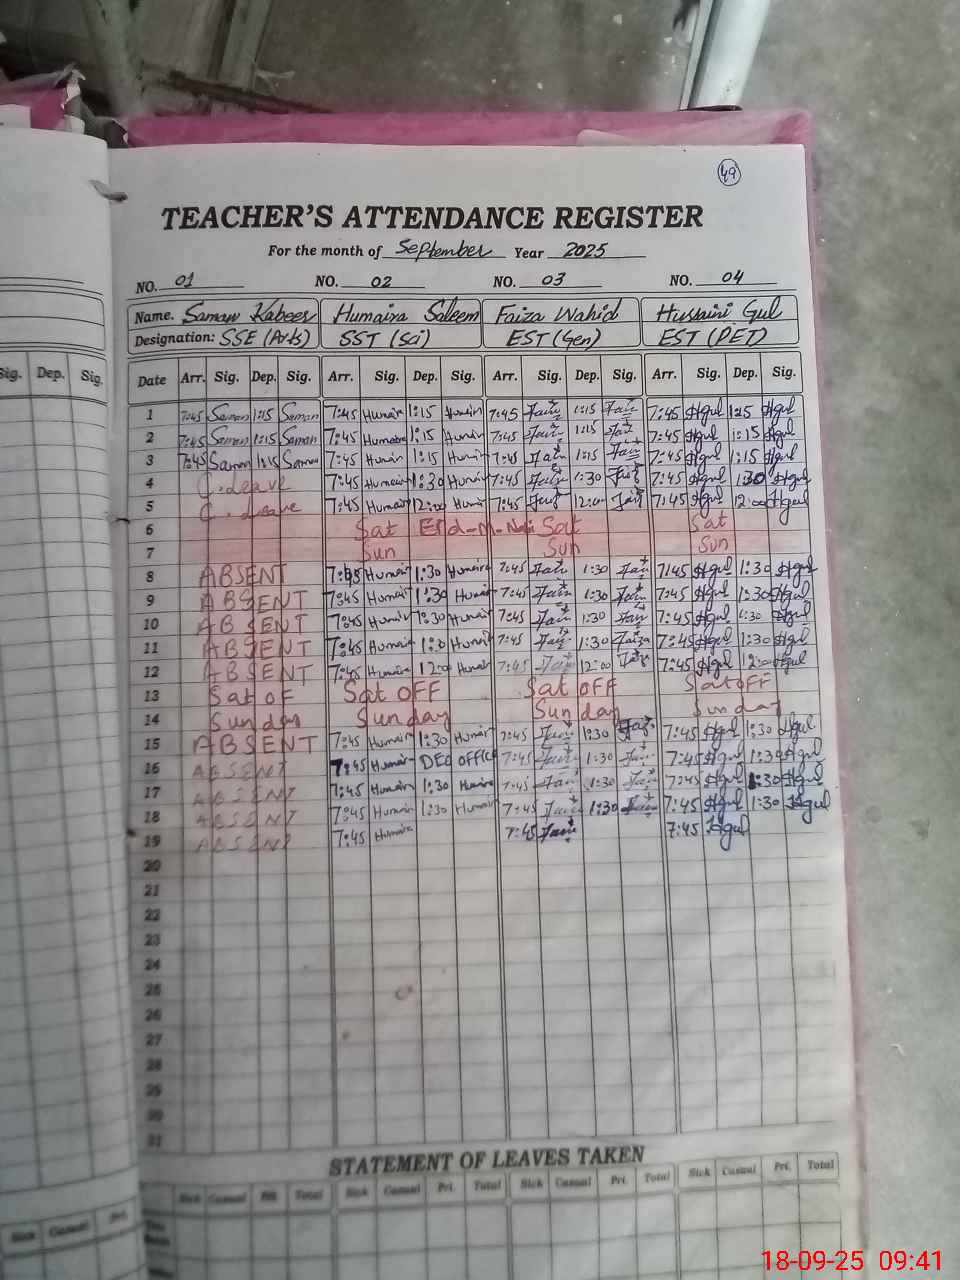 49
TEACHER'S ATTENDANCE REGISTER
For the month of September Year 2025
NO. 01 NO. 02 NO. 03 NO. 04
Name. Saman Kabeer Humaira Saleem Faiza Wahid Hussaini Gul
Designation: SSE (Arts) SST (Sci) EST (Gen) EST (PET)
Sig. Dep. Sig. Date Arr. Sig. Dep. Sig. Arr. Sig. Dep. Sig. Arr. Sig. Dep. Sig. Arr. Sig. Dep. Sig.
1 7:45 Saman 1:15 Saman 7:45 Humair 1:15 Humair 7:45 1:15 7:45 Hgul 1:15 Hgul
2 7:45 Saman 1:15 Saman 7:45 Humaira 1:15 Humair 7:45 1:15 7:45 Hgul 1:15 Hgul
3 7:45 Saman 1:15 Saman 7:45 Humair 1:15 Humair 7:45 1:15 7:45 Hgul 1:15 Hgul
4 C.leave 7:45 Humair 1:30 Humair 7:45 1:30 7:45 Hgul 1:30 Hgul
5 C.Leave 7:45 Humair 12:00 Humair 7:45 12:00 7:45 Hgul 12:00 Hgul
6 Sat Sat Sat
7 Sun Sun Sun
8 ABSENT 7:45 Humair 1:30 Humair 7:45 1:30 7:45 Hgul 1:30 Hgul
9 ABSENT 7:45 Humair 1:30 Humair 7:45 1:30 7:45 Hgul 1:30 Hgul
10 ABSENT 7:45 Humair 1:30 Humair 7:45 1:30 7:45 Hgul 1:30 Hgul
11 ABSENT 7:45 Humair Humair 7:45 1:30 Faiza 7:45 Hgul 1:30 Hgul
12 ABSENT 7:45 Humaira 12:00 Humair 7:45 12:00 Faiza 7:45 Hgul 12:00 Hgul
13 Sat OF Sat OFF Sat OFF Sat OFF
14 Sunday Sunday Sunday Sunday
15 ABSENT 7:45 Humair 1:30 Humair 7:45 1:30 7:45 Hgul 1:30 Hgul
16 ABSENT 7:45 Humair DEO OFFICE 7:45 1:30 7:45 Hgul 1:30 Hgul
17 ABSENT 7:45 Humair 1:30 Humair 7:45 1:30 7:45 Hgul 1:30 Hgul
18 ABSENT 7:45 Humair 1:30 Humair 7:45 1:30 7:45 Hgul 1:30 Hgul
19 ABSENT 7:45 Humaira 7:45 7:45 Hgul
20
21
22
23
24
25
26
27
28
29
30
31
STATEMENT OF LEAVES TAKEN
Sick Casual Pri. Sick Casual Pri. Total Sick Casual Pri. Total Sick Casual Pri. Total Sick Casual Pri. Total
18-09-25 09:41